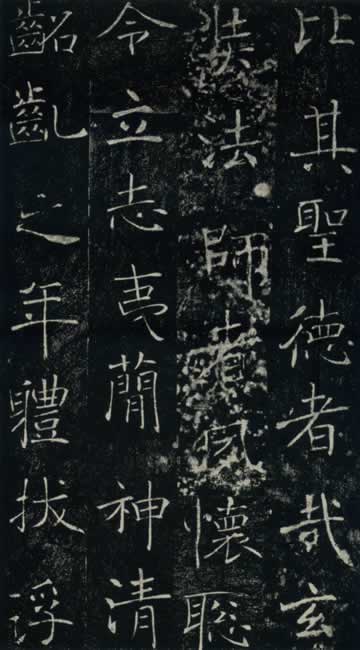 比其聖德者哉玄
奘法師者夙懷聰
令立志夷簡神清
齠齔之年體拔浮